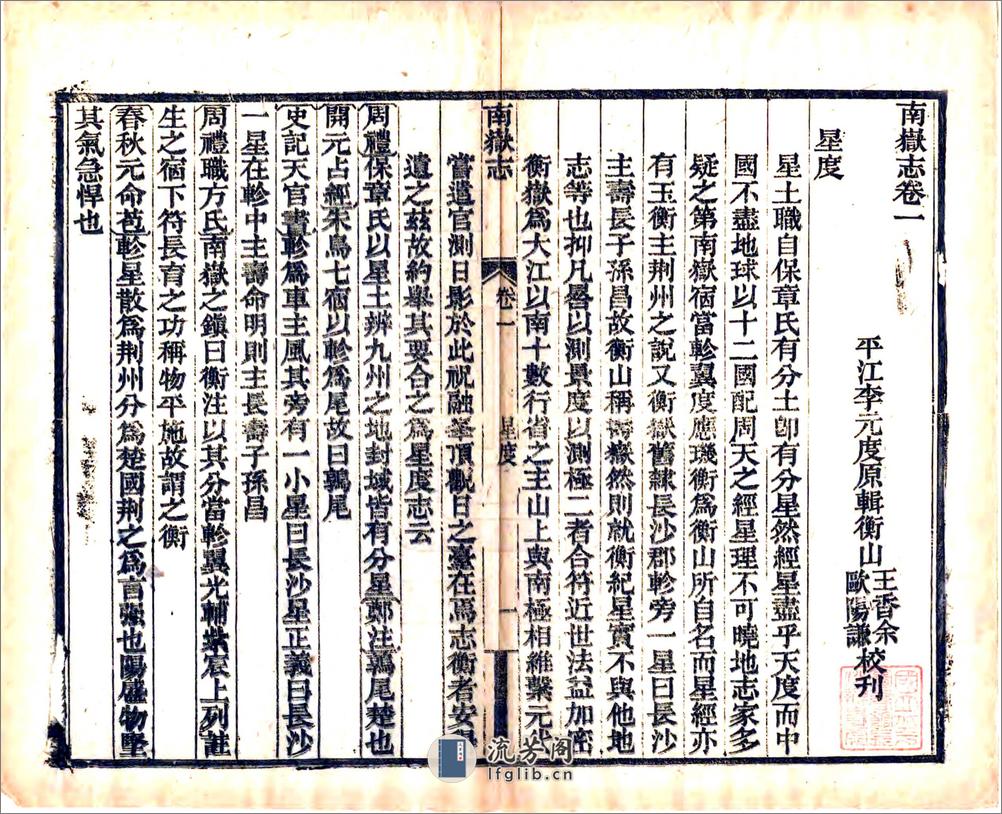 南嶽志卷一
平江李元度原輯衡山王香余歐陽謙校刊
星度
星土職自保章氏有分土卽有分星然經星盡乎天度而中
國不盡地球以十二國配周天之經星理不可曉地志家多
疑之第南嶽宿當軫翼度應璣衡爲衡山所自名而星經亦
有玉衡主荆州之說又衡嶽舊隸長沙郡軫旁一星曰長沙
主壽長子孫昌故衡山稱壽嶽然則就衡紀星實不與他地
志等也抑凡晷以測景度以測極二者合符近世法益加密
衡嶽爲大江以南十數行省之主山上與南極相維繫元代
南嶽志 卷一 星度 一
當遣官測日影於此祝融峯頂觀日之臺在焉志衡者安得
遺之茲故約舉其要合之爲星度志云
周禮保章氏以星土辨九州之地封域皆有分星鄭注鶉尾楚也
開元占經朱鳥七宿以軫爲尾故曰鶉尾
史記天官書軫爲車主風其旁有一小星曰長沙星正義曰長沙
一星在軫中主壽命明則主長壽子孫昌
周禮職方氏南嶽之鎮曰衡注以其分當軫翼光輔紫宸上列註
生之宿下符長育之功稱物平施故謂之衡
春秋元命苞軫星散爲荆州分爲楚國荆之爲言强也陽盛物堅
其氣急悍也
流芳阁
lfglib.cn